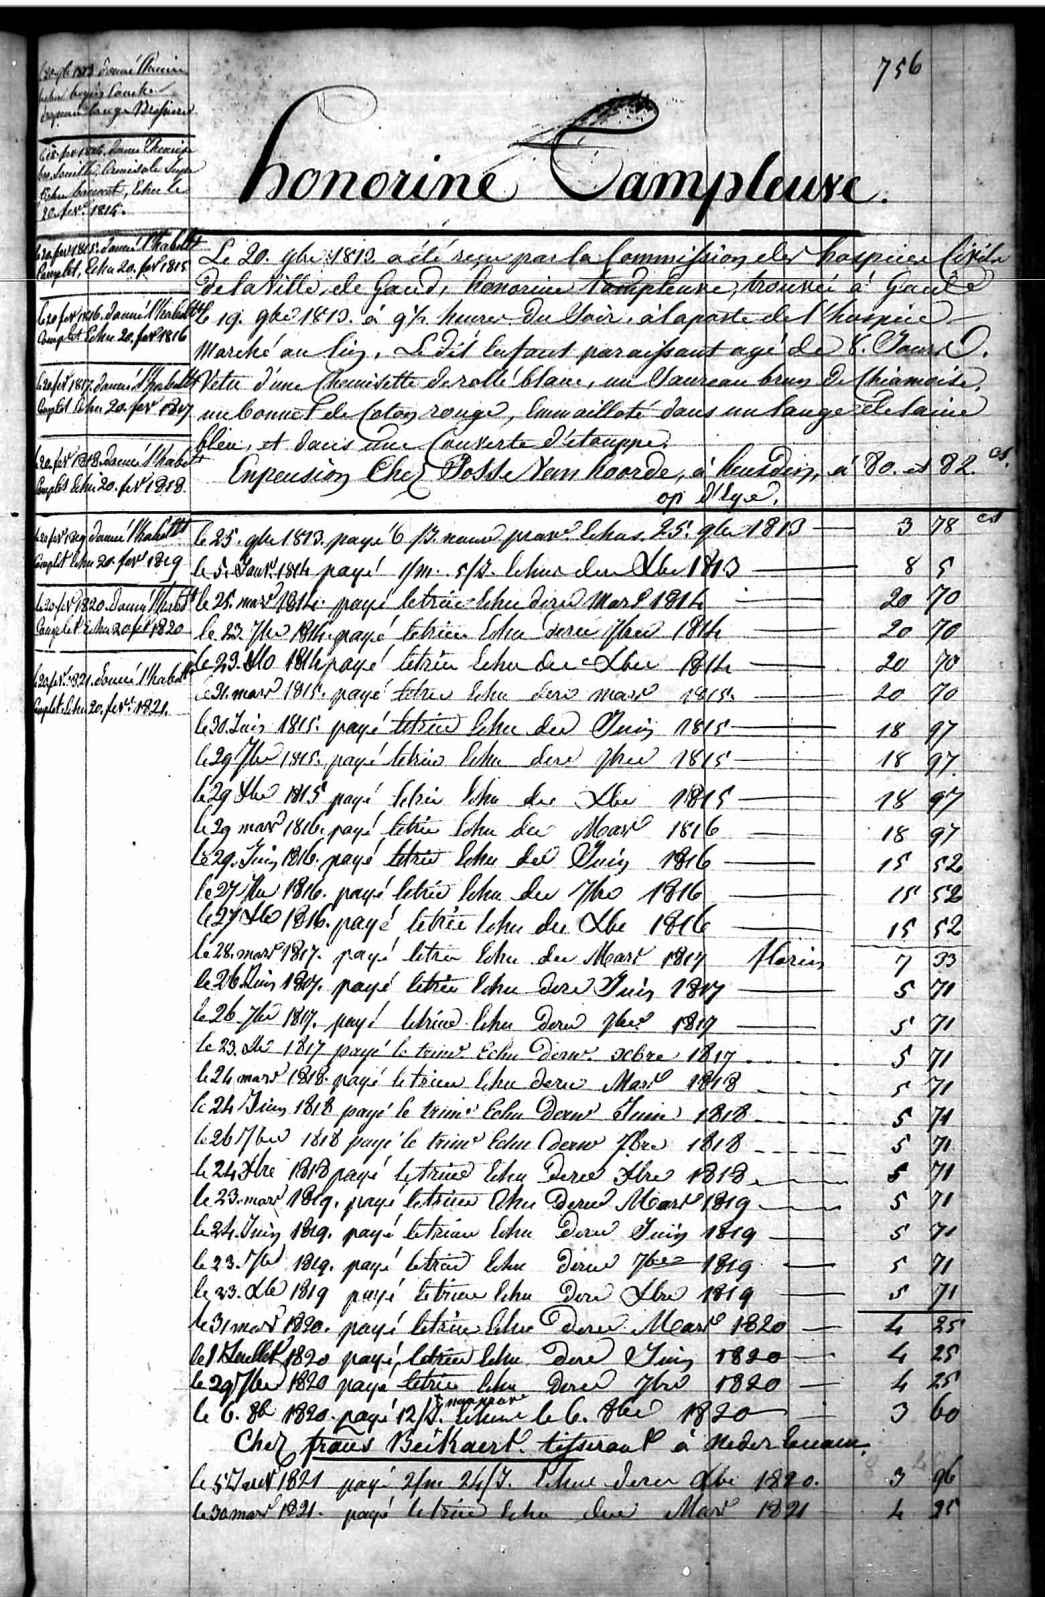 756
honorine Tampleuve.
le 20 fevr 1815. donné l'habillt
Complet, Echu 20. fevr 1815
le 20 fevr 1816. donné l'habillt
Complet Echu 20. fevr 1816
le 20 fevr 1817. donné l'habillt
Complet Echu 20. fevr 1817
le 20 fevr 1818. donné l'habillt
Complet Echu 20. fevr 1818.
le 20 fevr 1819 donné l'habillt
Complet Echu 20. fevr 1819
le 20 fevr 1820. donné l'habillt
Complet Echu 20 fevr 1820
le 20 fevr 1821. donné l'habillt
Complet. Echu 20. fevr. 1821.
Le 20. 9bre 1813 a été reçu par la Commission des hospices Civils
De la Ville de Gand, honorine tampleuve, trouvée à Gand
le 19. 9bre 1813. à 9½ heures Du Soir, à la porte de l'hospice
Marché au lin, Le dit Enfant paraissant agé de 8. Jours.
Vetu d'une Chemisette de toile blanc, un Saureau brun de Chiamoise,
un bonnet de Coton rouge, Emmailloté dans un lange de laine
bleu, et dans une Couverte d'étouppe.
En pension Chez Josse Van hoorde, à heusden, à 80. et 82. ct.
op d'Eye.
le 25. 9bre 1813. payé 6 /J. Echus 25. 9bre 1813 3 78 ct
le 5. Janvr 1814 payé 1/m. 5/J. Echus der Xbre 1813 8 5
le 25. mars 1814. payé letrim Echu dere Mars 1814 20 70
le 23. 7bre 1814. payé letrim Echu dere 7bre 1814 20 70
le 23. Xbre 1814 payé letrim Echu der Xbre 1814 20 70
le 21. mars 1815. payé letrim Echu dere mars 1815 20 70
le 30. Juin 1815. payé letrim Echu der Juin 1815 18 97
le 29 7bre 1815. payé letrim Echu dere 7bre 1815 18 97.
le 29 Xbre 1815 payé letrim Echu der Xbre 1815 18 97
le 29 mars 1816. payé letrim Echu der Mars 1816 18 97
le 29. Juin 1816. payé letrim Echu der Juin 1816 15 52
le 27 7bre 1816. payé letrim Echu der 7bre 1816 15 52
le 27 Xbre 1816. payé letrim Echu der Xbre 1816 15 52
le 28. mars 1817. payé letrim Echu der Mars 1817 florins 7 33
le 26 Juin 1817. payé letrim Echu dere Juin 1817 5 71
le 26. 7bre 1817. payé letrim Echu dere 7bre 1817 5 71
le 23. Xbre 1817 payé le trimr Echu Dernr xbre 1817 5 71
le 24 mars 1818. payé letrim Echu dere Mars 1818 5 71
le 24 Juin 1818 payé le trimr Echu Dernr Juin 1818 5 71
le 26 7bre 1818 payé le trimr Echu Dernr 7bre 1818 5 71
le 24 Xbre 1818 payé letrim Echu Dere Xbre 1818 5 71
le 23. mars 1819. payé letrim Echu Dere Mars 1819 5 71
le 24. Juin 1819. payé letrim Echu Dere Juin 1819 5 71
le 23. 7bre 1819. payé letrim Echu dere 7bre 1819 5 71
le 23. Xbre 1819 payé letrim Echu Dere Xbre 1819 5 71
le 31 mars 1820. payé letrim Echu Dere Mars 1820 4 25
le 1 Juillet 1820 payé letrim Echu Dere Juin 1820 4 25
le 29 7bre 1820 payé letrim Echu Dere 7bre 1820 4 25
le 6. 8bre 1820. payé 12/J. Echus le 6. 8bre 1820 3 60
Chez frans Beikaert. tisserant à
le 5 Janvr 1821 payé 2/m 24/J. Echus dere Xbre 1820. 3 96
le 30 mars 1821. payé letrim Echu der Mars 1821 4 25